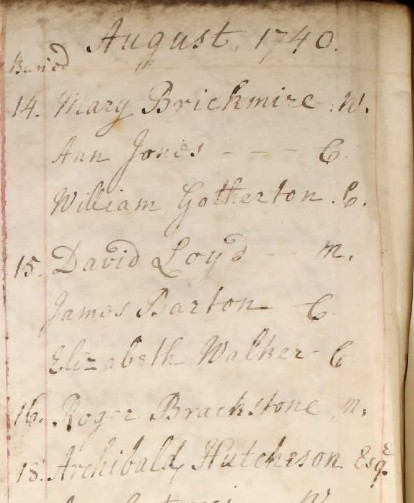 August, 1740.
Buried
14. Mary Brickmire. W.
Ann Jones - - - C.
William Gotherton. C.
15. David Loyd - - m.
James Barton - C
Elizabeth Walker - C
16. Roger Brackstone. m.
18. Archibald Hutcheson Esqr.